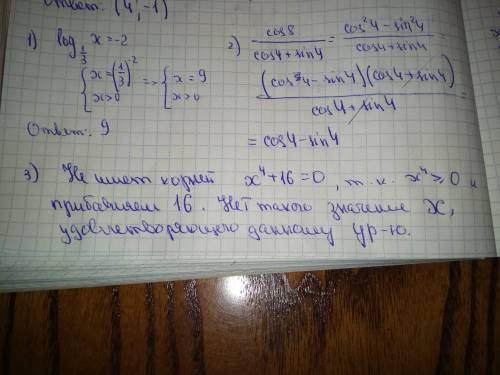 Ответ: (4, -1)
1) log_{1/3} x = -2
{ x = (1/3)^{-2} => { x = 9
{ x > 0 { x > 0
Ответ: 9
2) cos8 / (cos4 + sin4) = (cos²4 - sin²4) / (cos4 + sin4) =
(cos4 - sin4)(cos4 + sin4) / (cos4 + sin4) =
= cos4 - sin4
3) Не имеет корней x⁴ + 16 = 0, т.к. x⁴ ≥ 0 и
прибавляем 16. Нет такого значение x,
удовлетворяющего данному ур-ю.